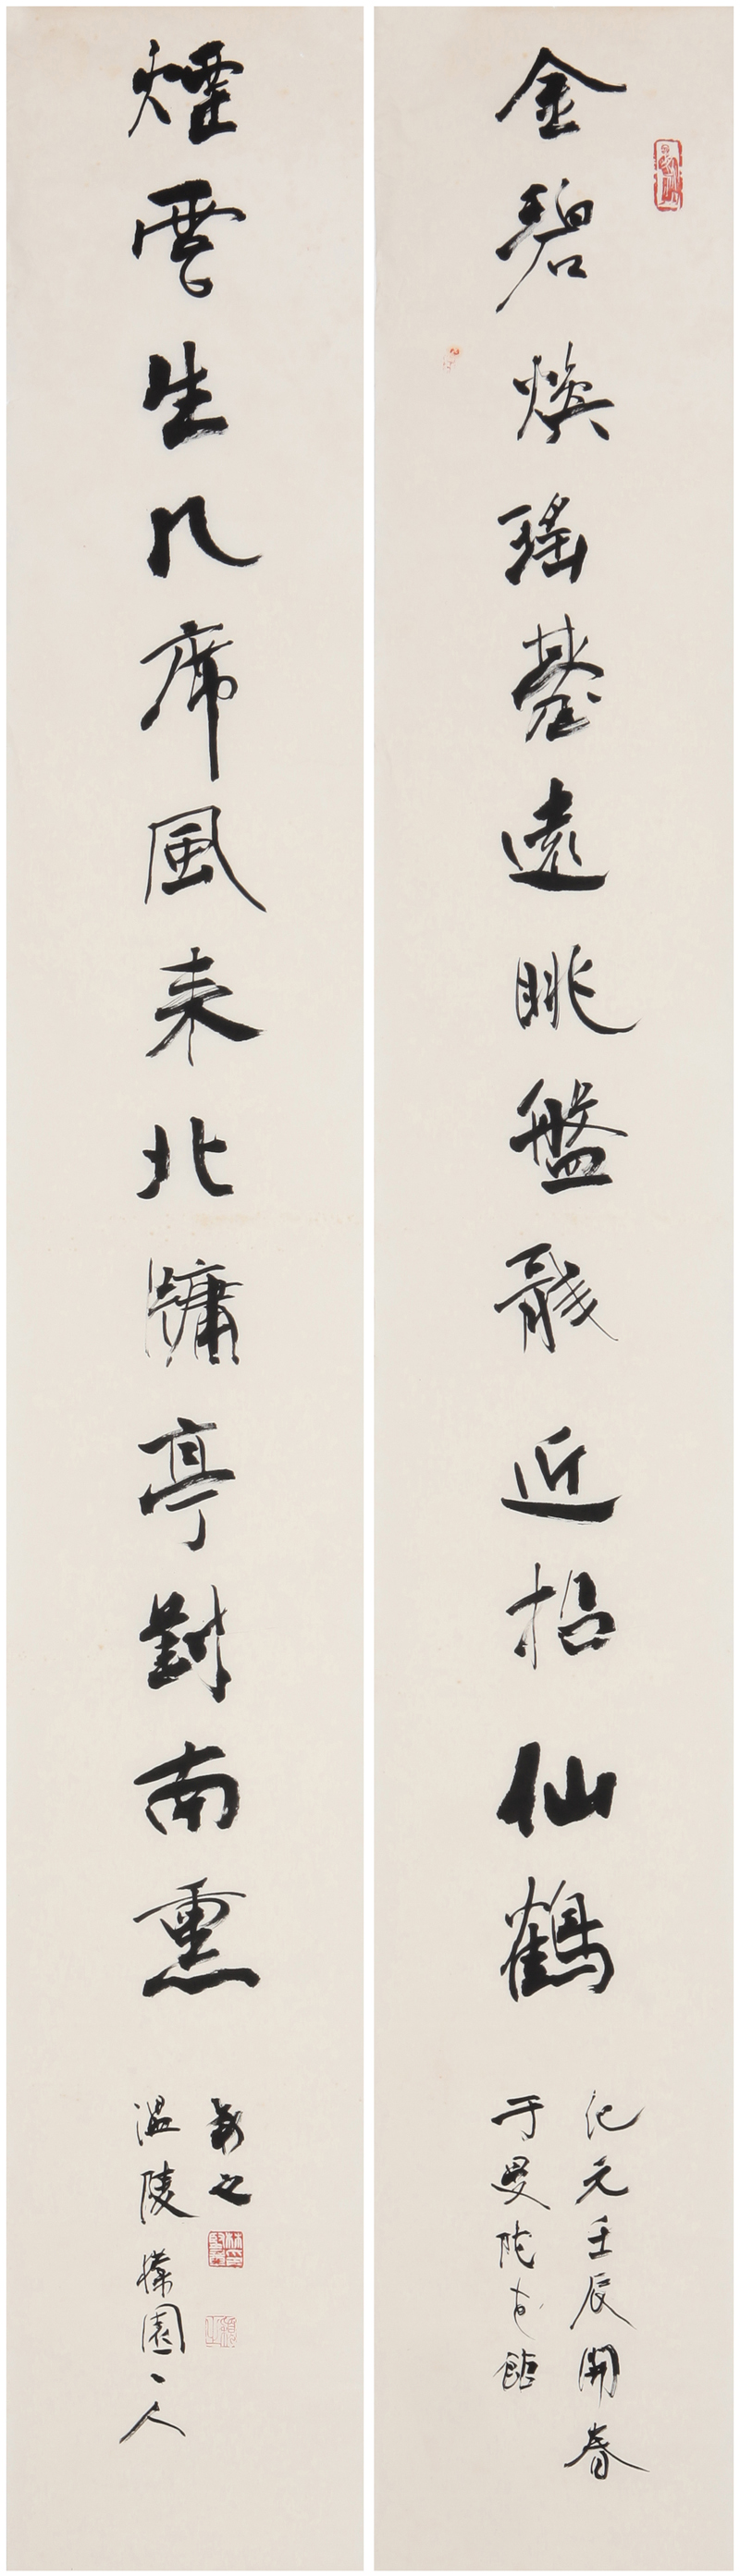 金碧煥瑤臺遠眺盤龍近招仙鶴
紀元壬辰開春
于曼陀花館
煙雲生几席風來北牖亭對南熏
溫陵 園一人